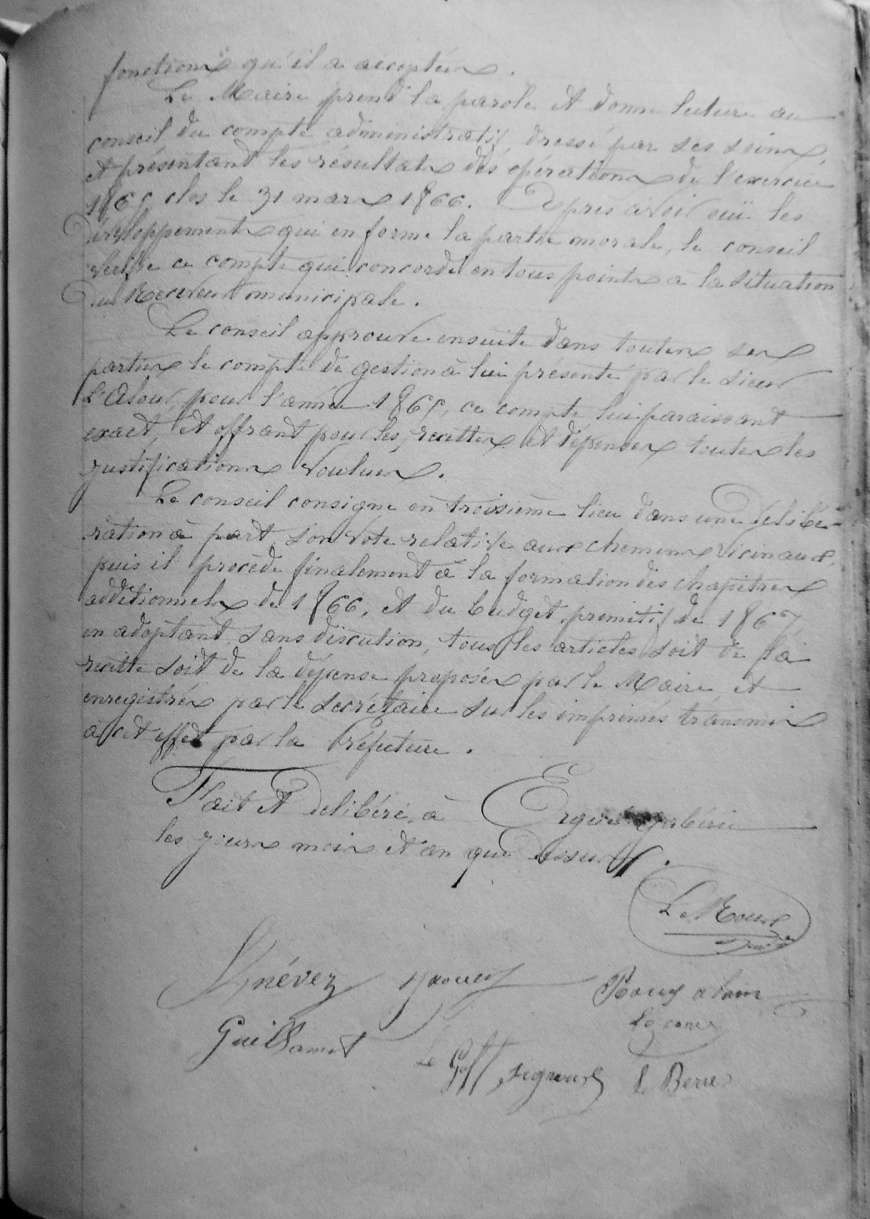 fonctions qu'il a acceptées.
Le Maire prend la parole et donne lecture au
conseil du compte administratif, dressé par ses soins
et présentant les résultats des opérations de l'exercice
1865 clos le 31 mars 1866. Après avoir ouï les
développements qui en forme la partie morale, le conseil
vérifie ce compte qui concorde en tous points à la situation
du Receveur municipale.
Le conseil approuve ensuite dans toutes ses
parties le compte de gestion à lui présenté par le sieur
pour l'année 1865, ce compte lui paraissant
exact, et offrant pour les recettes et dépenses toutes les
justifications voulues.
Le conseil consigne en troisième lieu dans une délibé-
ration à part son vote relatif aux chemins vicinaux,
puis il procède finalement à la formation des chapitres
additionnels de 1866, et du budget primitif de 1867
en adoptant, sans discution, tous les articles soit de la
recette soit de la dépense proposés par le Maire, et
enregistrés par le secrétaire sur les imprimés transmis
à cet effet par la Préfecture.
Fait et délibéré, à Ergué-gabéric
les jours mois et an que dessus.
Le Roux
Nénévez
Rouz alain
Guillamot
Le Goff Signour Le Berre